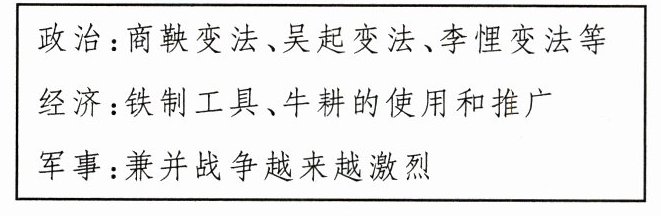 政治:商鞅变法、吴起变法、李悝变法等
经济:铁制工具、牛耕的使用和推广
军事:兼并战争越来越激烈